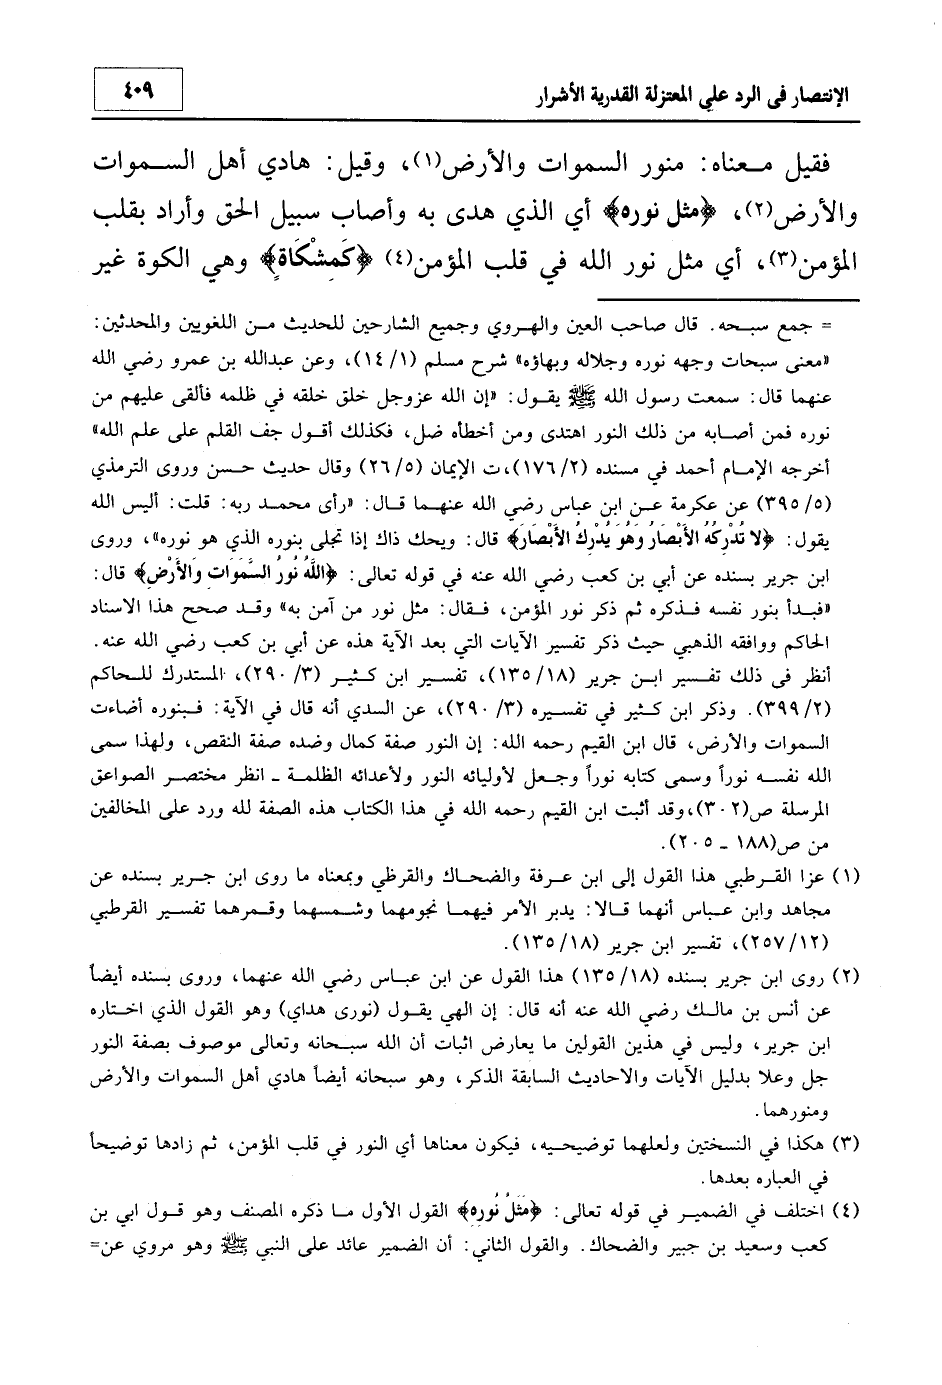 الإنتصار في الرد علي المعتزلة القدرية الأشرار
٤٠٩
فقيل معناه: منور السموات والأرض(١)، وقيل: هادي أهل السموات
والأرض(٢)، ﴿مثل نوره﴾ أي الذي هدى به وأصاب سبيل الحق وأراد بقلب
المؤمن(٣)، أي مثل نور الله في قلب المؤمن(٤) ﴿كَمِشْكَاةٍ﴾ وهي الكوة غير
= جمع سبحه. قال صاحب العين والهروي وجميع الشارحين للحديث من اللغويين والمحدثين:
«معنى سبحات وجهه نوره وجلاله وبهاؤه» شرح مسلم (١٤/١)، وعن عبدالله بن عمرو رضي الله
عنهما قال: سمعت رسول الله ﷺ يقول: «إن الله عزوجل خلق خلقه في ظلمه فألقى عليهم من
نوره فمن أصابه من ذلك النور اهتدى ومن أخطأه ضل، فكذلك أقول جف القلم على علم الله»
أخرجه الإمام أحمد في مسنده (١٧٦/٢)،ت الإيمان (٢٦/٥) وقال حديث حسن وروى الترمذي
(٣٩٥/٥) عن عكرمة عن ابن عباس رضي الله عنهما قال: «رأى محمد ربه: قلت: أليس الله
يقول: ﴿لا تُدْرِكُهُ الأَبْصَارُ وَهُوَ يُدْرِكُ الأَبْصَارَ﴾ قال: ويحك ذاك إذا تجلى بنوره الذي هو نوره»، وروى
ابن جرير بسنده عن أبي بن كعب رضي الله عنه في قوله تعالى: ﴿اللَّهُ نُورُ السَّمَوَاتِ وَالأَرْضِ﴾ قال:
«فبدأ بنور نفسه فذكره ثم ذكر نور المؤمن، فقال: مثل نور من آمن به» وقد صحح هذا الاسناد
الحاكم ووافقه الذهبي حيث ذكر تفسير الآيات التي بعد الآية هذه عن أبي بن كعب رضي الله عنه.
أنظر فى ذلك تفسير ابن جرير (١٣٥/١٨)، تفسير ابن كثير (٢٩٠/٣)، المستدرك للحاكم
(٣٩٩/٢). وذكر ابن كثير في تفسيره (٢٩٠/٣)، عن السدي أنه قال في الآية: فبنوره أضاءت
السموات والأرض، قال ابن القيم رحمه الله: إن النور صفة كمال وضده صفة النقص، ولهذا سمى
الله نفسه نوراً وسمى كتابه نوراً وجعل لأوليائه النور ولأعدائه الظلمة ـ انظر مختصر الصواعق
المرسلة ص(٣٠٢)،وقد أثبت ابن القيم رحمه الله في هذا الكتاب هذه الصفة لله ورد على المخالفين
من ص(١٨٨ ـ ٢٠٥).
(١) عزا القرطبي هذا القول إلى ابن عرفة والضحاك والقرظي وبمعناه ما روى ابن جرير بسنده عن
مجاهد وابن عباس أنهما قالا: يدبر الأمر فيهما نجومهما وشمسهما وقمرهما تفسير القرطبي
(٢٥٧/١٢)، تفسير ابن جرير (١٣٥/١٨).
(٢) روى ابن جرير بسنده (١٣٥/١٨) هذا القول عن ابن عباس رضي الله عنهما، وروى بسنده أيضاً
عن أنس بن مالك رضي الله عنه أنه قال: إن الهي يقول (نورى هداي) وهو القول الذي اختاره
ابن جرير، وليس في هذين القولين ما يعارض اثبات أن الله سبحانه وتعالى موصوف بصفة النور
جل وعلا بدليل الآيات والاحاديث السابقة الذكر، وهو سبحانه أيضاً هادي أهل السموات والأرض
ومنورهما.
(٣) هكذا في النسختين ولعلهما توضيحيه، فيكون معناها أي النور في قلب المؤمن، ثم زادها توضيحاً
في العباره بعدها.
(٤) اختلف في الضمير في قوله تعالى: ﴿مَثَلُ نُورِهِ﴾ القول الأول ما ذكره المصنف وهو قول ابي بن
كعب وسعيد بن جبير والضحاك. والقول الثاني: أن الضمير عائد على النبي ﷺ وهو مروي عن=